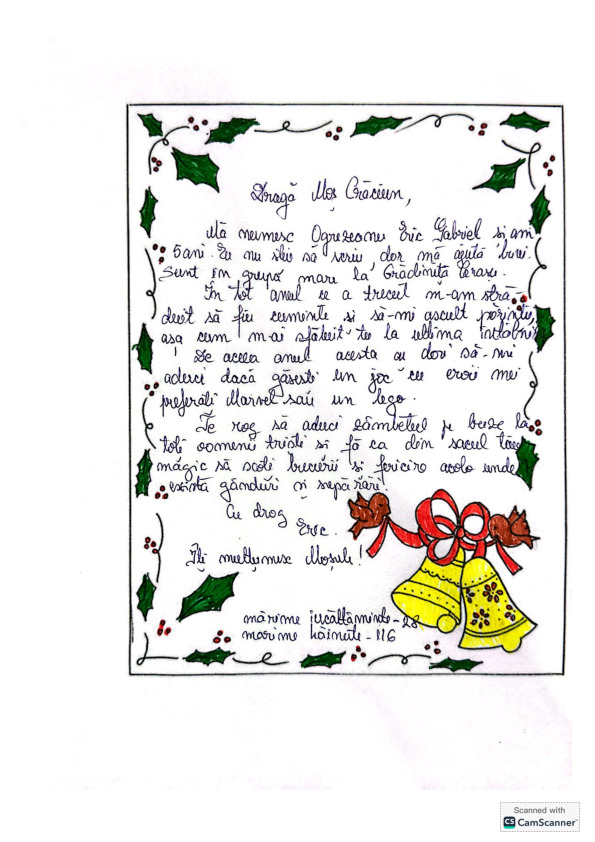 Dragă Moș Crăciun,
Mă numesc Ogrezeanu Eric Gabriel și am
5 ani. Eu nu știu să scriu, dar mă ajută buni.
Sunt în grupa mare la Grădinița
În tot anul ce a trecut m-am stră-
duit să fiu cuminte și să-mi ascult părinții,
așa cum m-ai sfătuit tu la ultima întâlnire
! De aceea anul acesta aș dori să-mi
aduci dacă găsești un joc cu eroii mei
preferați Marvel sau un lego.
Te rog să aduci zâmbetul pe buze la
toți oamenii triști și fă ca din sacul tău
magic să scoți bucurii și fericire acolo unde
există gânduri și supărări!
Cu drag
Eric.
Îți mulțumesc Moșule!
mărime încălțăminte - 28
marime hăinuțe - 116
Scanned with
CS CamScanner